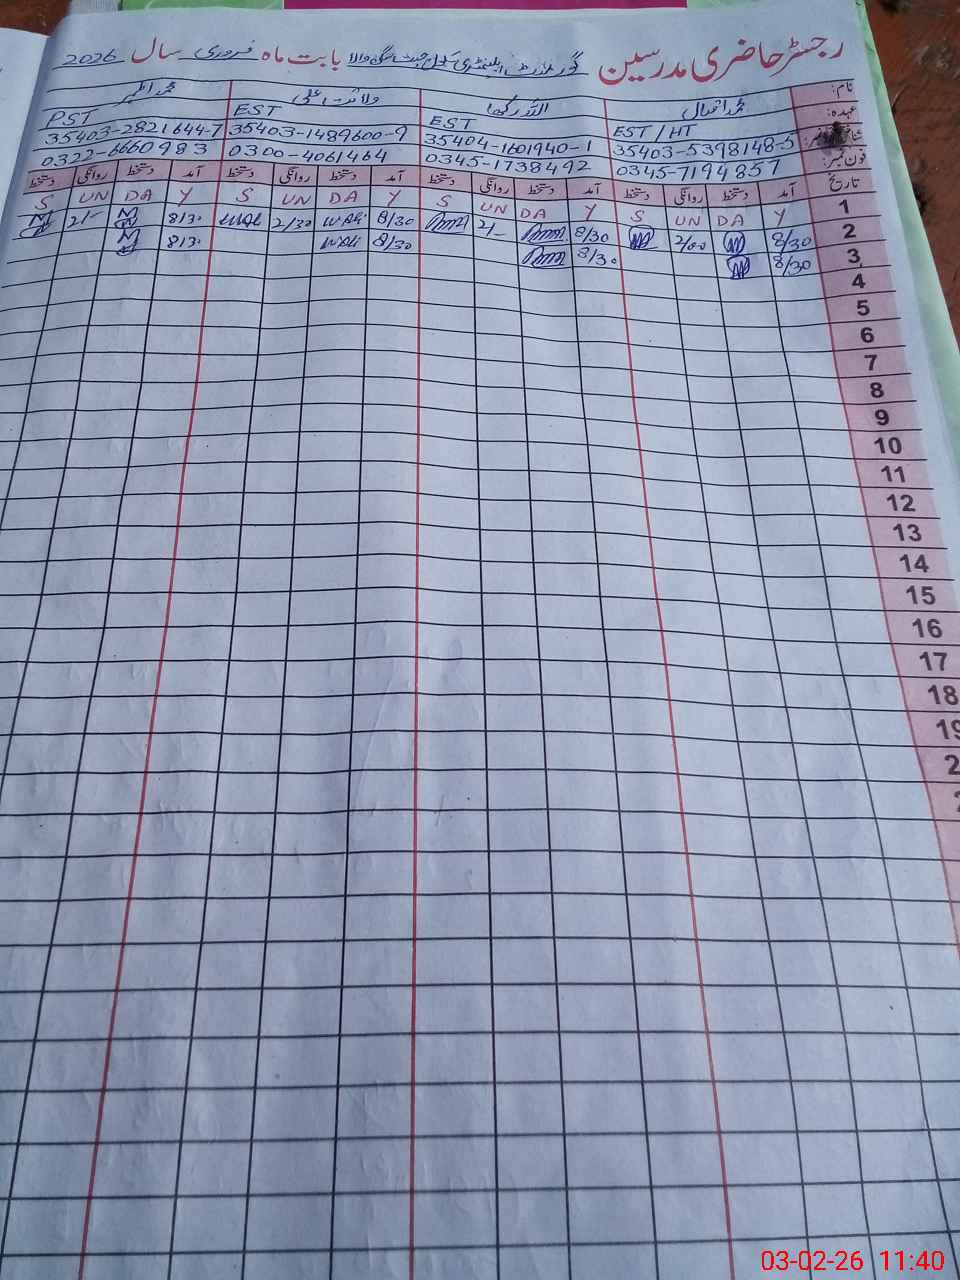 رجسٹر حاضری مدرسین گورنمنٹ ایلیمنٹری سکول بابت ماہ فروری سال 2026
نام: محمد اقبال اللہ رکھا ولائت علی محمد اظہر
عہدہ: EST/HT EST EST PST
35403-5398148-5 35404-1601940-1 35403-1489600-9 35403-2821644-7
فون نمبر: 0345-7194857 0345-1738492 0300-4061464 0322-6660983
تاریخ آمد دستخط روانگی دستخط آمد دستخط روانگی دستخط آمد دستخط روانگی دستخط آمد دستخط روانگی دستخط
1 Y DA UN S Y DA UN S Y DA UN S Y DA UN S
2 8/30 2/00 8/30 2/- 8/30 W.Ali 2/30 W.Ali 8/30 2/-
3 8/30 8/30 8/30 W.Ali 8/30
4
5
6
7
8
9
10
11
12
13
14
15
16
17
18
03-02-26 11:40